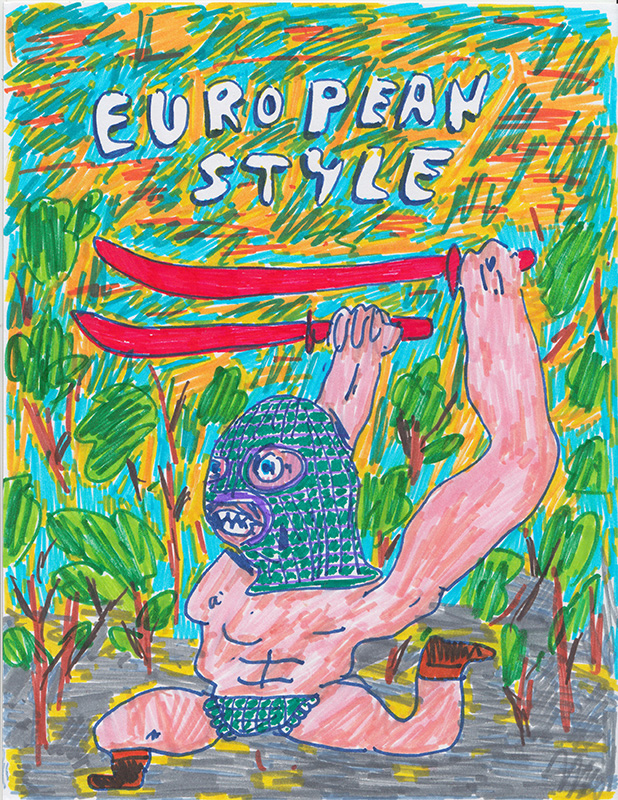 EUROPEAN
STYLE